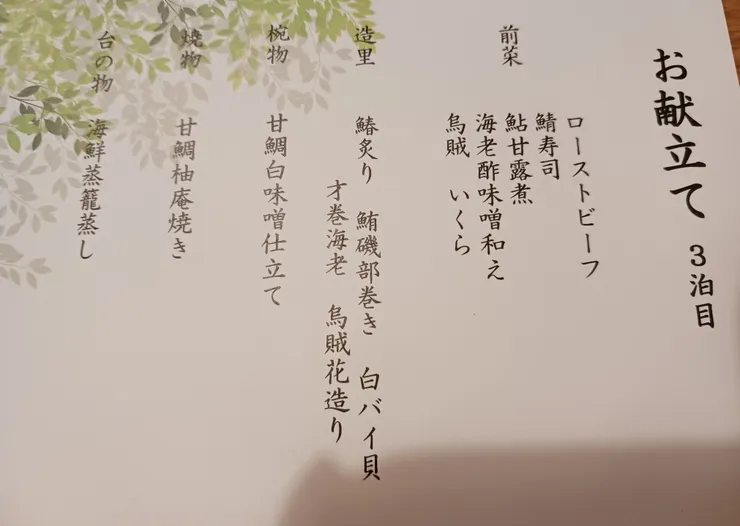 お献立て 3泊目
前菜
ローストビーフ
鯖寿司
鮎甘露煮
海老酢味噌和え
烏賊 いくら
造里
鰆炙り 鮪磯部巻き 白バイ貝
才巻海老 烏賊花造り
椀物
甘鯛白味噌仕立て
焼物
甘鯛柚庵焼き
台の物
海鮮蒸籠蒸し